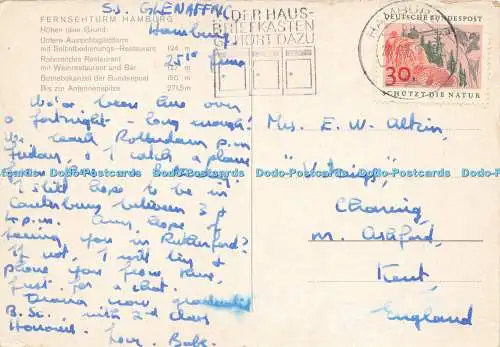 S.S. GLENAFFRIC
Hamburg
25th June
FERNSEHTURM HAMBURG
Höhen über Grund:
Untere Aussichtsplattform
mit Selbstbedienungs-Restaurant 124 m
Rotierendes Restaurant
mit Weinrestaurant und Bar
Betriebskanzel der Bundespost 150 m
Bis zur Antennenspitze 271,5 m
DER HAUS-
BRIEFKASTEN
GEHÖRT DAZU
HAMBURG
DEUTSCHE BUNDESPOST
30
SCHÜTZT DIE NATUR
We've been here over
a fortnight - long enough!
We reach Rotterdam p.m.
Friday, & I catch a plane
from
I still hope to be in
Canterbury between 3 &
4 p.m. Any hope of
seeing you in Rutherford?
If not, I will try &
phone you from there,
just for a chat.
now graduated
B.Sc. with 2nd class
Honours.
Love, Babs.
Mrs. E. W. Altin,
Charing,
nr. Ashford,
Kent,
England
Dodo-Postcards Dodo-Postcards Dodo-Postcards Dodo-Postcards Dodo-Postcards Dodo-Postcards